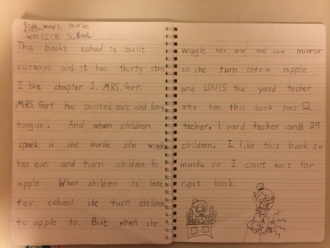 Side ways stories
WAYSIDE SCHOOL
This books school is built
sideways and it has thirty story
I like chapter 1. MRS. Gorf.
MRS. Gorf has pointed ears and long
tongue. And when children
speak a one words she wiggle
her ears and turn children to
apple When children is late
for school she turn children
to apple to. But when she
waggle her ear and low mirror
so she turn into a apple
and LOUIS the yard techer
ate her. this book has 2
techer. 1 yard techer and 27
children. I like this book so
much. so I cant wait for
next book.